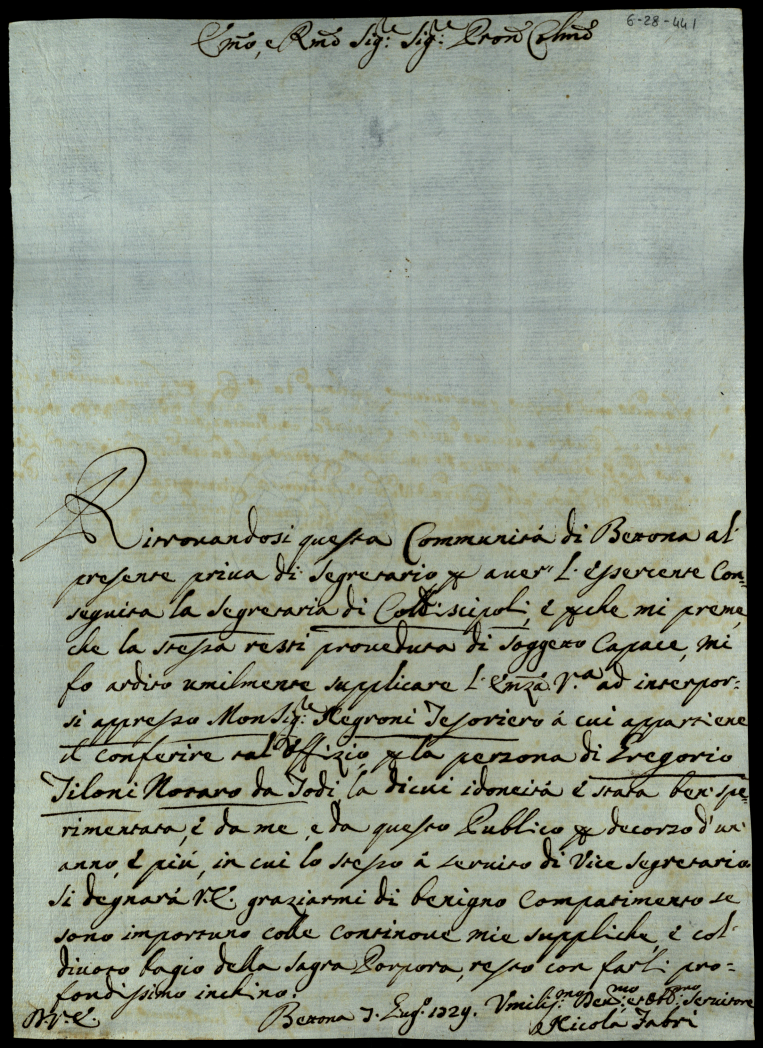 6-28-441
Emo, e Rmo Sig:re Sig:re Pron Colmo
Ritrouandosi questa Communità di Bettona al
presente priua di Segretario p auer l'essercente Con=
seguita la Segretaria di Collescipoli, è pche mi preme,
che la stessa resti proueduta di soggetto Capace, mi
fo ardito umilmente supplicare l'Emza V.a ad interpor=
si appresso Monsig:re Negroni Tesoriero à cui appartiene
il conferire tal Offizio p la persona di Gregorio
Tiloni Notaro da Todi la di cui idoneità è stata ben spe=
rimentata, è da me, e da questo Publico p decorzo d'un
anno, è più, in cui lo stesso à seruito di Vice Segretario
si degnarà V.E. graziarmi di benigno Compatimento se
sono importuno colle continoue mie suppliche, è col
diuoto bagio della Sagra Porpora, resto con farli pro=
fondissimo inchino.
D. V. E. Bettona 7. Lug. 1729. Vmiliss.mo Deu.mo et Obb.mo Seruitore
Nicolà Fabri